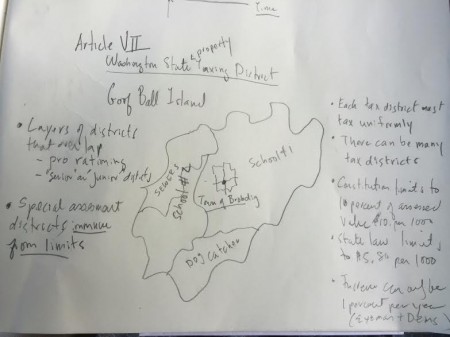 Time
Article VII
property
Washington State ^ Taxing District
Goof Ball Island
• Layers of districts
that overlap
- pro rationing
- "senior" an "junior" districts
• Special assessment
districts immune
from limits
sewers
School #2
School #1
Town of Brobding
Dog Catcher
• Each tax district must
tax uniformly
• There can be many
tax districts
• Constitution limits to
1 percent of assessed
value $10. per 1000
• State law limits
to per 1000
• Increase can only be
1 percent per year
(Eyeman + Dems)